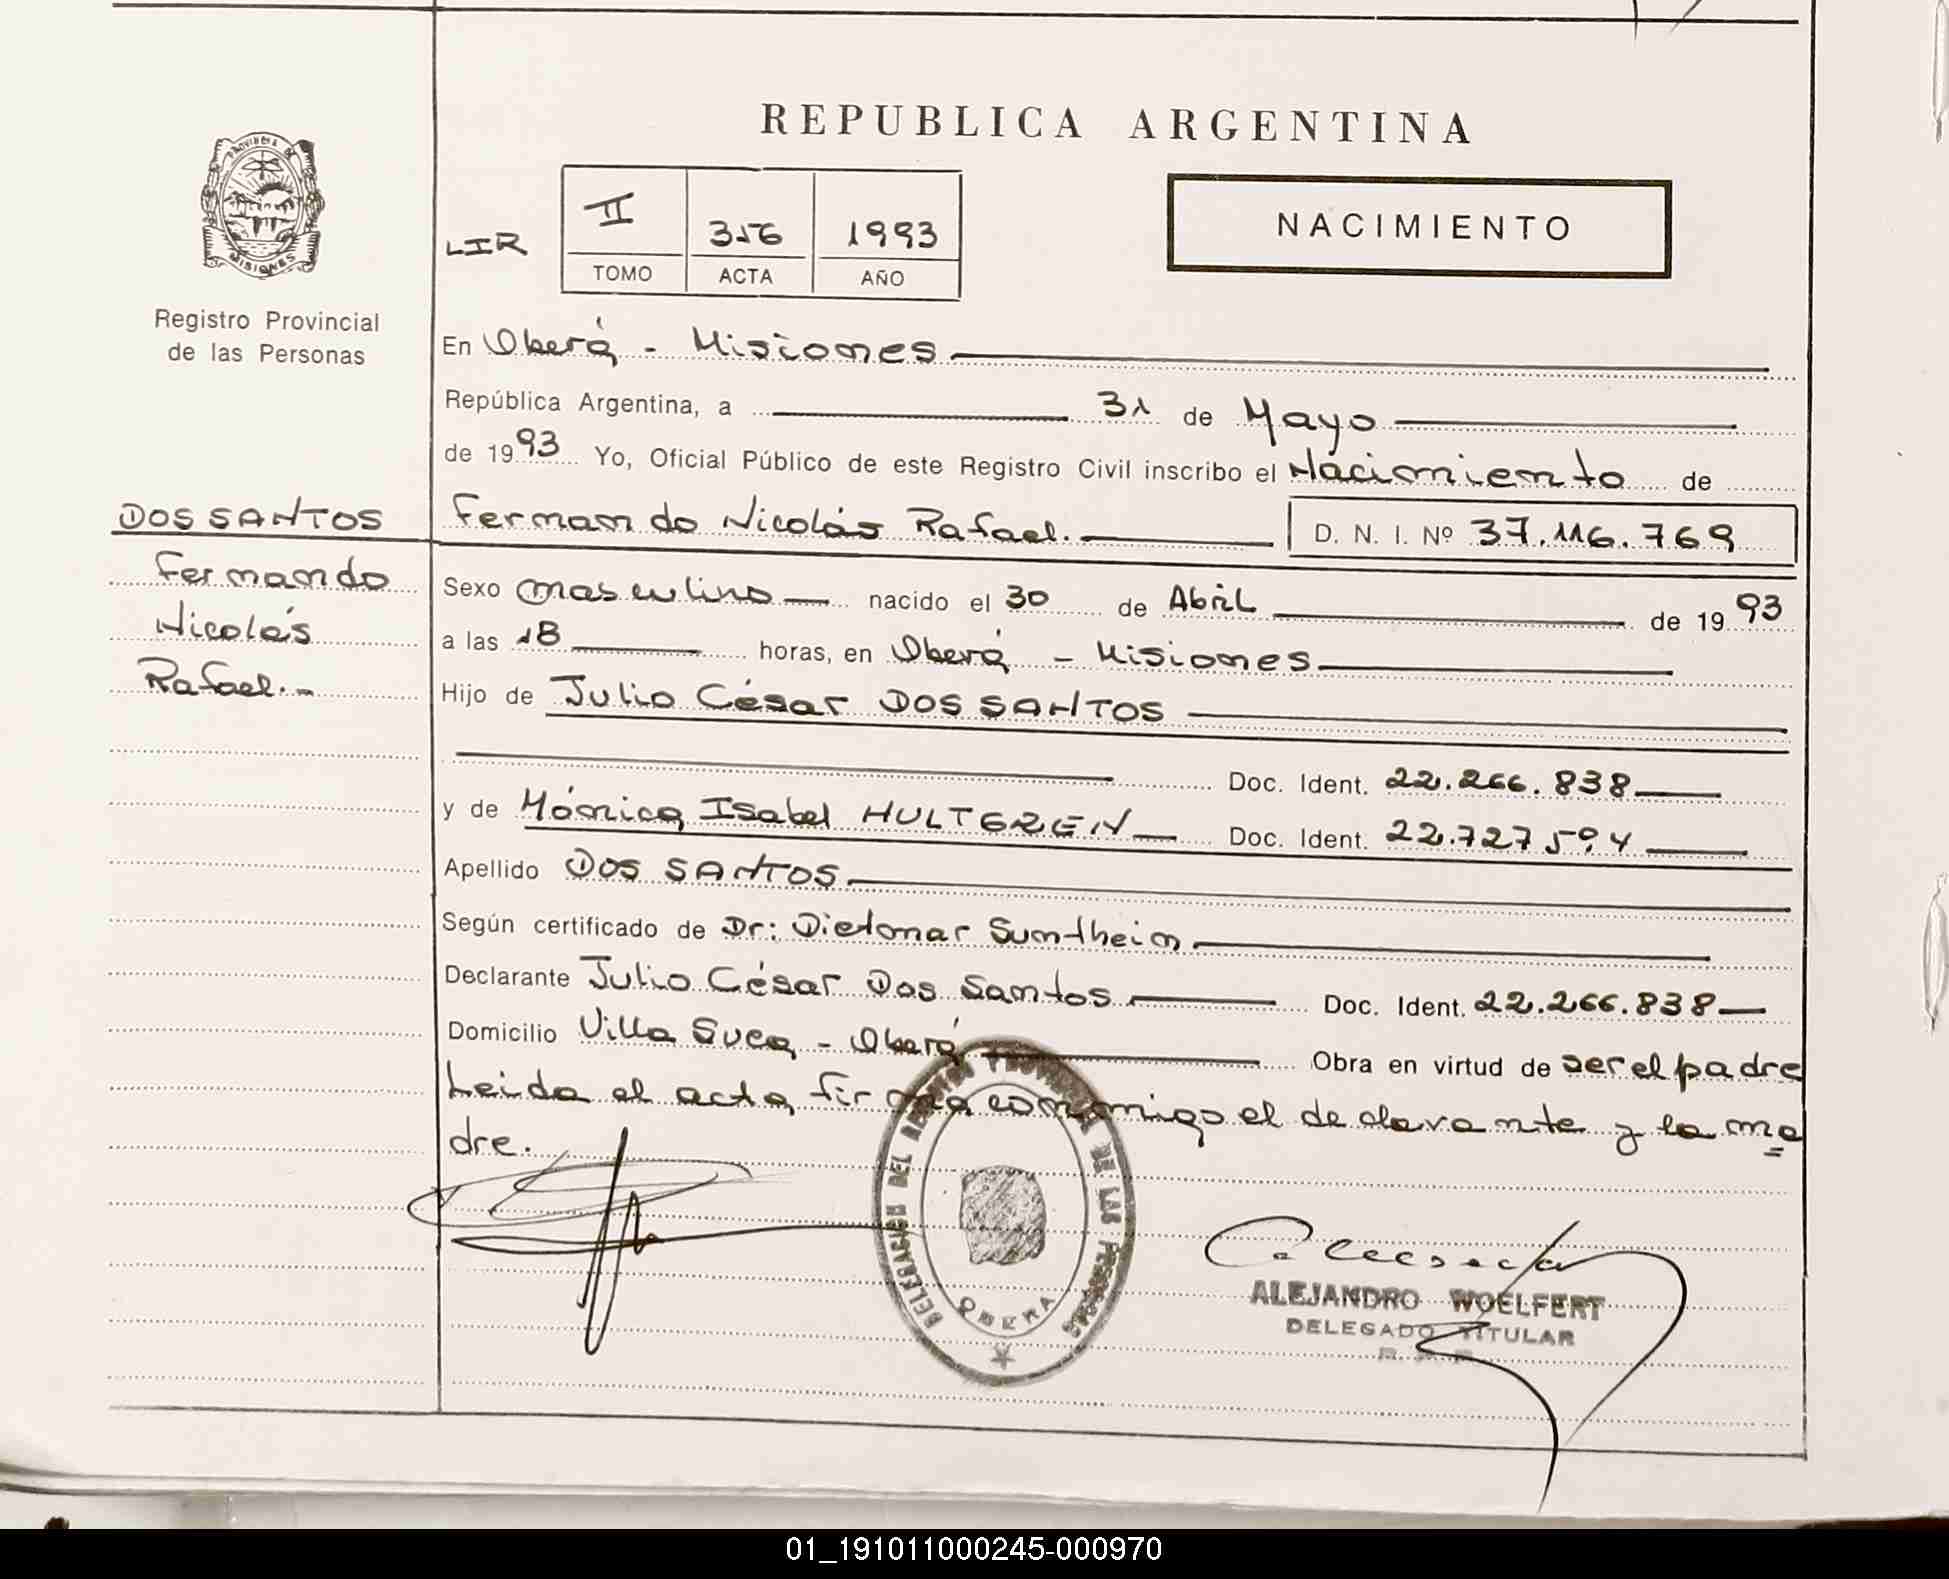 REPUBLICA ARGENTINA
PROVINCIA DE
MISIONES
Registro Provincial
de las Personas
LIR
II 356 1993
TOMO ACTA AÑO
NACIMIENTO
En Oberá - Misiones
República Argentina, a 31 de Mayo
de 1993 Yo, Oficial Público de este Registro Civil inscribo el Nacimiento de
DOS SANTOS
Fernando
Nicolás
Rafael.-
Fernando Nicolás Rafael. D. N. I. Nº 37.116.769
Sexo masculino nacido el 30 de Abril de 1993
a las 18 horas, en Oberá - Misiones
Hijo de Julio César DOS SANTOS
Doc. Ident. 22.266.838
y de Mónica Isabel HULTGREN Doc. Ident. 22.727.504
Apellido DOS SANTOS
Según certificado de Dr: Dietmar Suntheim
Declarante Julio César Dos Santos Doc. Ident. 22.266.838
Domicilio Villa Sueca - Oberá Obra en virtud de ser el padre
Leida el acta, firma conmigo el declarante y la ma
dre.
DELEGACION DEL REGISTRO PROVINCIAL DE LAS PERSONAS
OBERA
ALEJANDRO WOELFERT
DELEGADO TITULAR
01_191011000245-000970